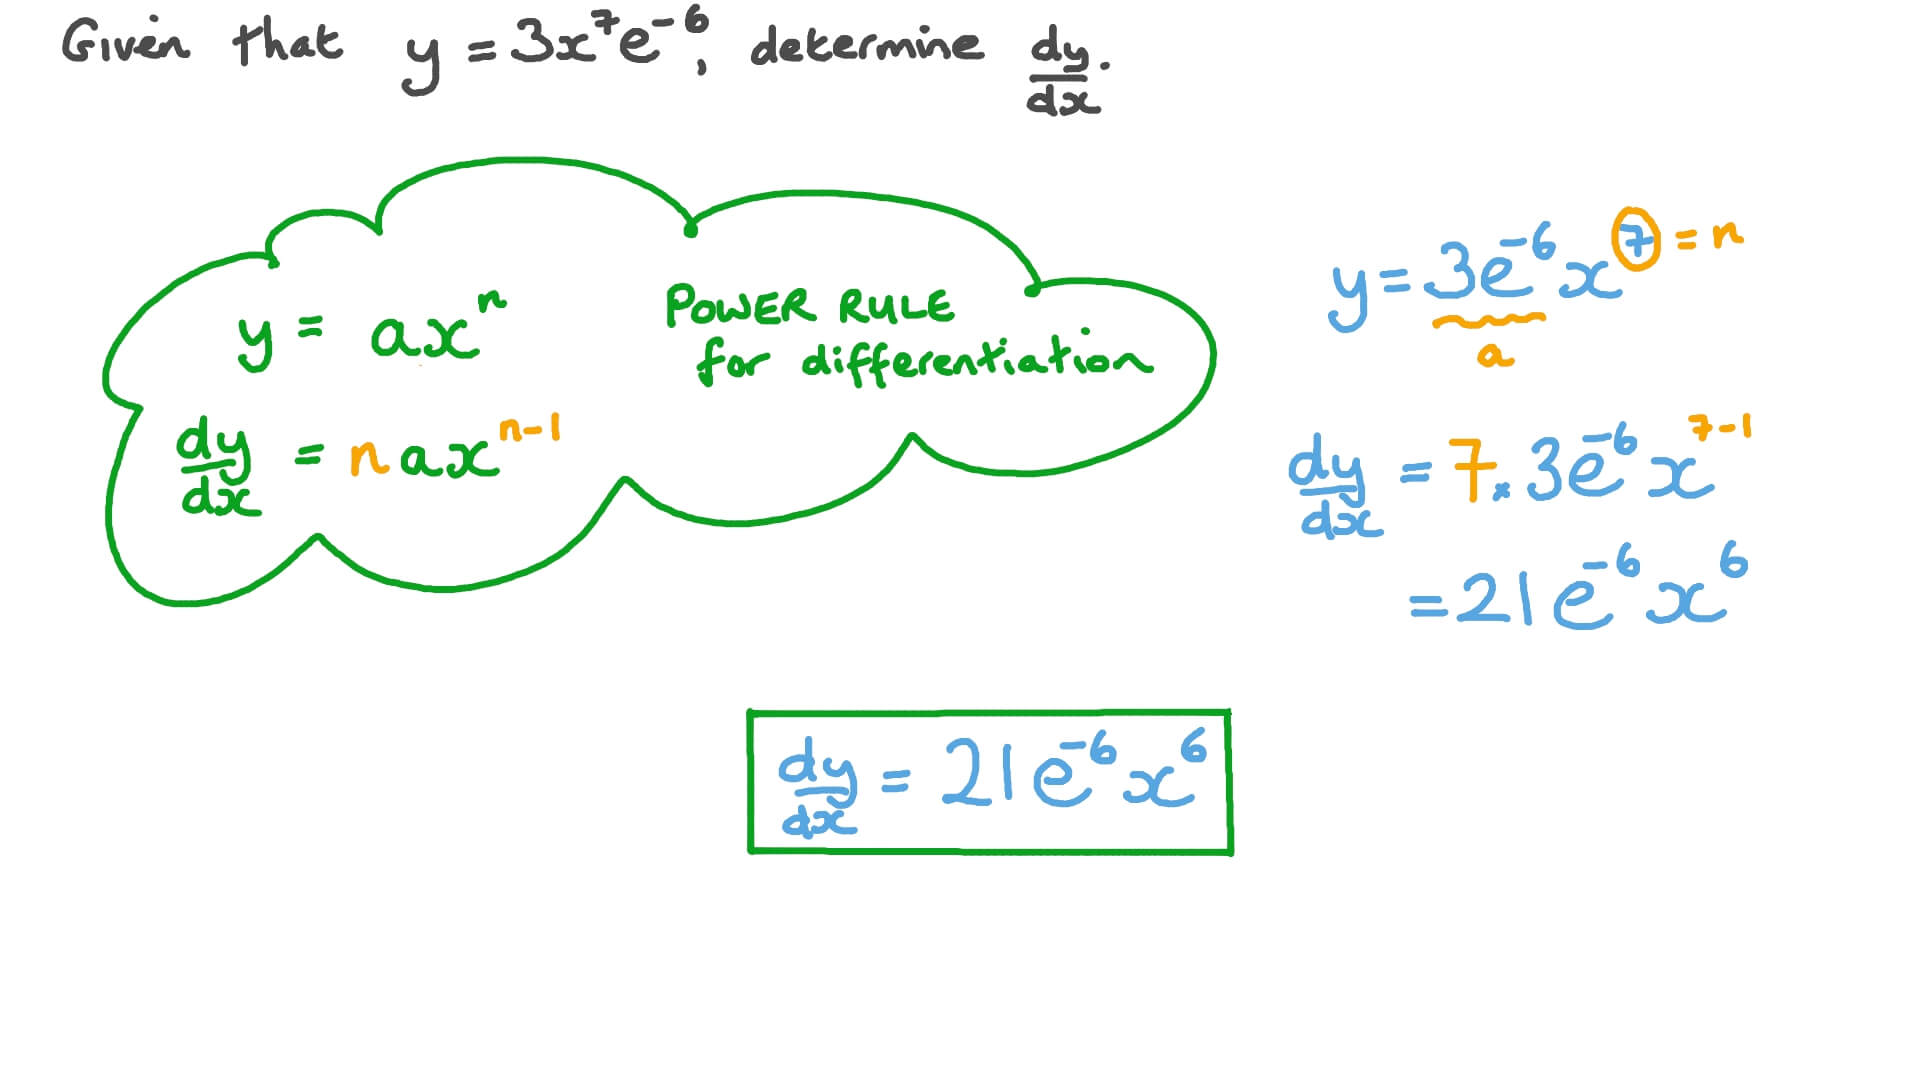 Given that y = 3x⁷e⁻⁶, determine dy/dx.
y = axⁿ
dy/dx = naxⁿ⁻¹
POWER RULE
for differentiation
y = 3e⁻⁶x⁷ = n
a
dy/dx = 7 × 3e⁻⁶x⁷⁻¹
= 21e⁻⁶x⁶
dy/dx = 21e⁻⁶x⁶